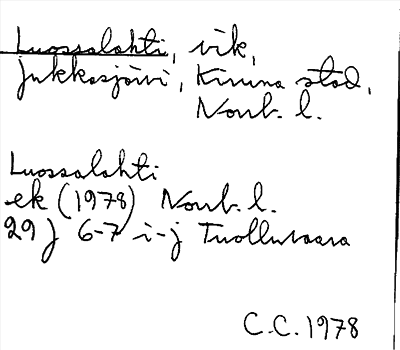 Luossalahti, vik,
Jukkasjärvi, Kiruna stad,
Norrb. l.
Luossalahti
ek (1978) Norrb. l.
29 J 6-7 i-j Tuolluvaara
C.C. 1978